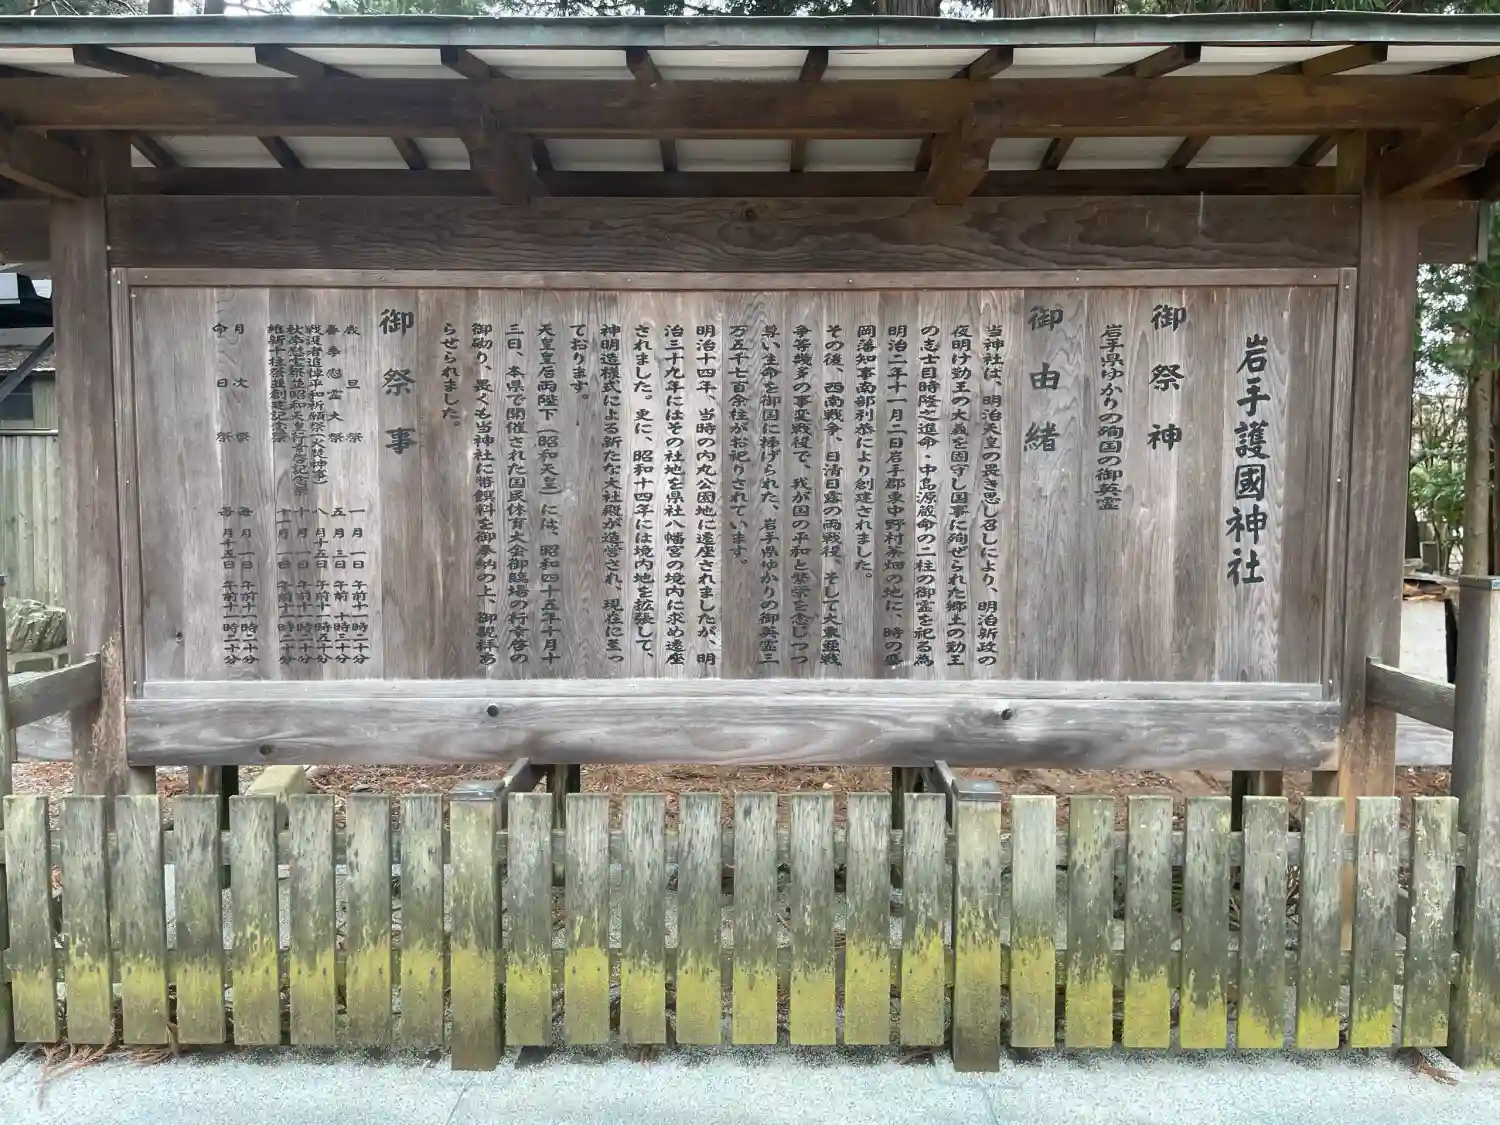 岩手護國神社
御祭神
岩手県ゆかりの殉国の御英霊
御由緒
当神社は、明治天皇の畏き思し召しにより、明治新政の
夜明け勤王の大義を固守し国事に殉ぜられた郷土の勤王
の志士目時隆之進命・中島源蔵命の二柱の御霊を祀る為
明治二年十一月二日岩手郡東中野村茶畑の地に、時の盛
岡藩知事南部利恭により創建されました。
その後、西南戦争、日清日露の両戦役、そして大東亜戦
争等幾多の事変戦役で、我が国の平和と繁栄を念じつつ
尊い生命を御国に捧げられた、岩手県ゆかりの御英霊三
万五千七百余柱がお祀りされています。
明治十四年、当時の内丸公園地に遷座されましたが、明
治三十九年にはその社地を県社八幡宮の境内に求め遷座
されました。更に、昭和十四年には境内地を拡張して、
神明造様式による新たな大社殿が造営され、現在に至っ
ております。
天皇皇后両陛下(昭和天皇)には、昭和四十五年十月十
三日、本県で開催された国民体育大会御臨場の行幸啓の
御砌り、畏くも当神社に幣饌料を御奉納の上、御親拝あ
らせられました。
御祭事
歳旦祭 一月一日 午前十一時二十分
春季慰霊大祭 五月三日 午前十時三十分
戦没者追悼平和祈願祭(火徒神事) 八月十五日 午前十一時五十分
秋季慰霊祭並昭和天皇行幸啓記念祭 十月一日 午前十一時二十分
維新十柱祭並創建記念祭 十一月一日 午前十一時二十分
月次祭 毎月一日 午前十一時二十分
命日祭 毎月十五日 午前十一時二十分